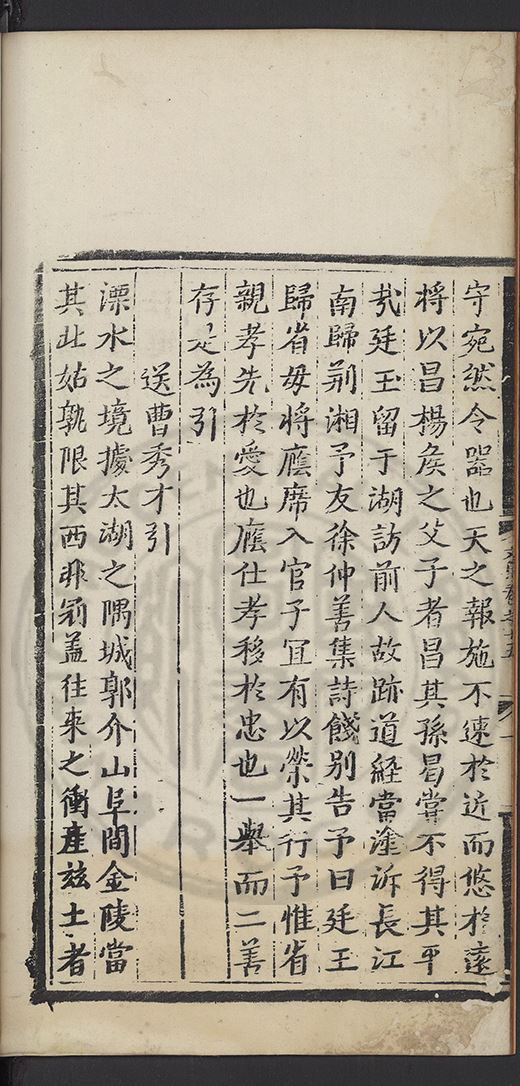 守宛然令器也天之報施不速於近而悠於遠
将以昌楊矦之父子者昌其孫曷甞不得其平
㢤廷玉留于湖訪前人故跡道經當塗泝長江
南歸荆湘予友徐仲善集詩餞別告予曰廷玉
歸省毋将廕席入官子冝有以榮其行予惟省
親孝先於愛也廕仕孝移於忠也一舉而二善
存是為引
送曹秀才引
溧水之境據太湖之隅城郭介山阜間金陵當
其北姑孰限其西非剏盖往来之衝産玆土者